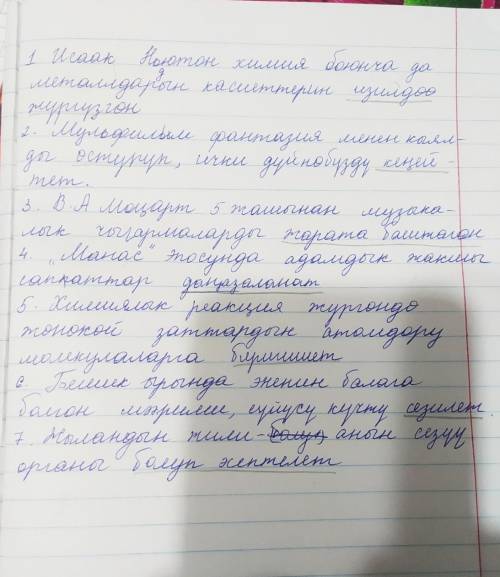 1 Исаак Ньютон химия боюнча да
металлдардын касиеттерин изилдөө
жургузгон
2. Мультфильм фантазия менен каял-
ды остуруп, ички дуйнобузду кеңей-
тет.
3. В.А Моцарт 5 жашынан музыка-
лык чыгармаларды жарата баштаган
4. „Манас" эпосунда адамдык жакшы
сапкаттар даңазаланат
5. Химиялак реакция жургондо
жонокой заттардын атомдору
молекулаларга биригишет
6. Бешик ырында эненин балага
болгон мээрими, суйусу кучту сезилет.
7. Жыландын тили - анын сезуу
органы болуп эептелет